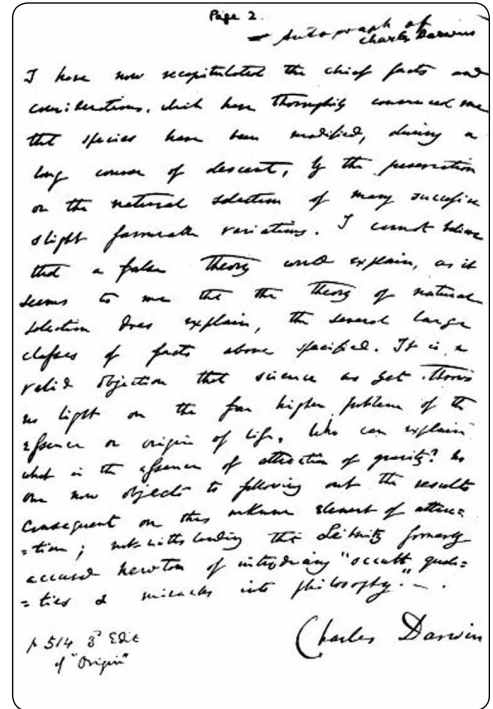 Page 2.
— Autograph of
Charles Darwin
I have now recapitulated the chief facts and
considerations, which have thoroughly convinced me
that species have been modified, during a
long course of descent, by the preservation
or the natural selection of many successive
slight favourable variations. I cannot believe
that a false theory would explain, as it
seems to me that the theory of natural
selection does explain, the several large
classes of facts above specified. It is a
valid objection that science as yet throws
no light on the far higher problem of the
essence or origin of life. Who can explain
what is the essence of attraction of gravity? No
one now objects to following out the results
consequent on this unknown element of attrac=
=tion; notwithstanding that Leibnitz formerly
accused Newton of introducing "occult quali=
=ties & miracles into philosophy." —
Charles Darwin
p 514 3d Edit
of "Origin"